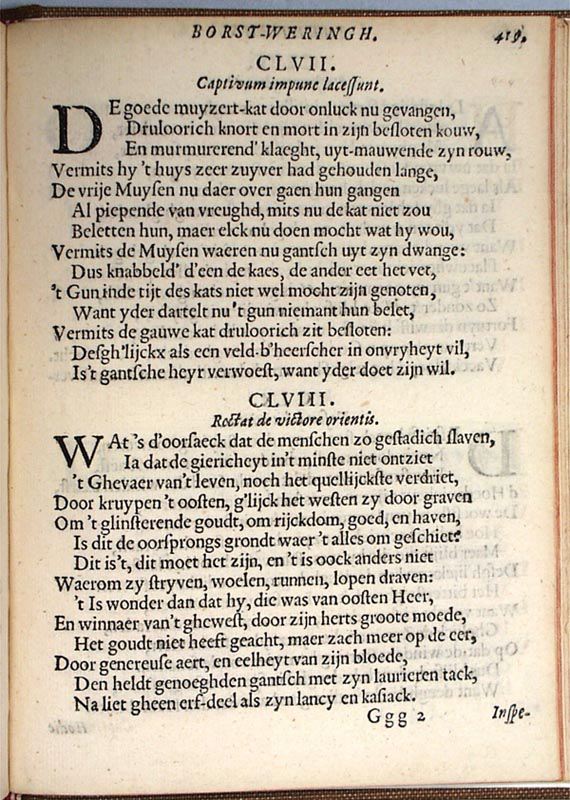 BORST-WERINGH. 419.
CLVII.
Captivum impune lacessunt.
DE goede muyzert-kat door onluck nu gevangen,
Druloorich knort en mort in zijn besloten kouw,
En murmurerend' klaeght, uyt-mauwende zyn rouw,
Vermits hy 't huys zeer zuyver had gehouden lange,
De vrije Muysen nu daer over gaen hun gangen
Al piepende van vreughd, mits nu de kat niet zou
Beletten hun, maer elck nu doen mocht wat hy wou,
Vermits de Muysen waeren nu gantsch uyt zyn dwange:
Dus knabbeld' d'een de kaes, de ander eet het vet,
't Gun inde tijt des kats niet wel mocht zijn genoten,
Want yder dartelt nu 't gun niemant hun belet,
Vermits de gauwe kat druloorich zit besloten:
Desgh'lijckx als een veld-b'heerscher in onvryheyt vil,
Is't gantsche heyr verwoest, want yder doet zijn wil.
CLVIII.
Rectat de victore orientis.
WAt 's d'oorsaeck dat de menschen zo gestadich slaven,
Ia dat de giericheyt in't minste niet ontziet
't Ghevaer van't leven, noch het quellijckste verdriet,
Door kruypen 't oosten, g'lijck het westen zy door graven
Om 't glinsterende goudt, om rijckdom, goed, en haven,
Is dit de oorsprongs grondt waer 't alles om geschiet?
Dit is't, dit moet het zijn, en 't is oock anders niet
Waerom zy stryven, woelen, runnen, lopen draven:
't Is wonder dan dat hy, die was van oosten Heer,
En winnaer van't ghewest, door zijn herts groote moede,
Het goudt niet heeft geacht, maer zach meer op de eer,
Door genereuse aert, en eelheyt van zijn bloede,
Den heldt genoeghden gantsch met zyn laurieren tack,
Na liet gheen erf-deel als zyn lancy en kasiack.
Ggg 2 Inspe-